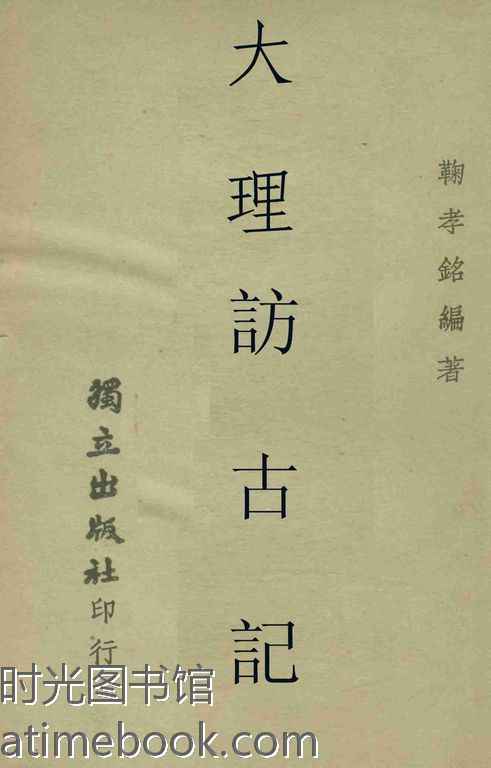 鞠孝銘編著
大理訪古記
獨立出版社印行
时光图书馆
atimebook.com